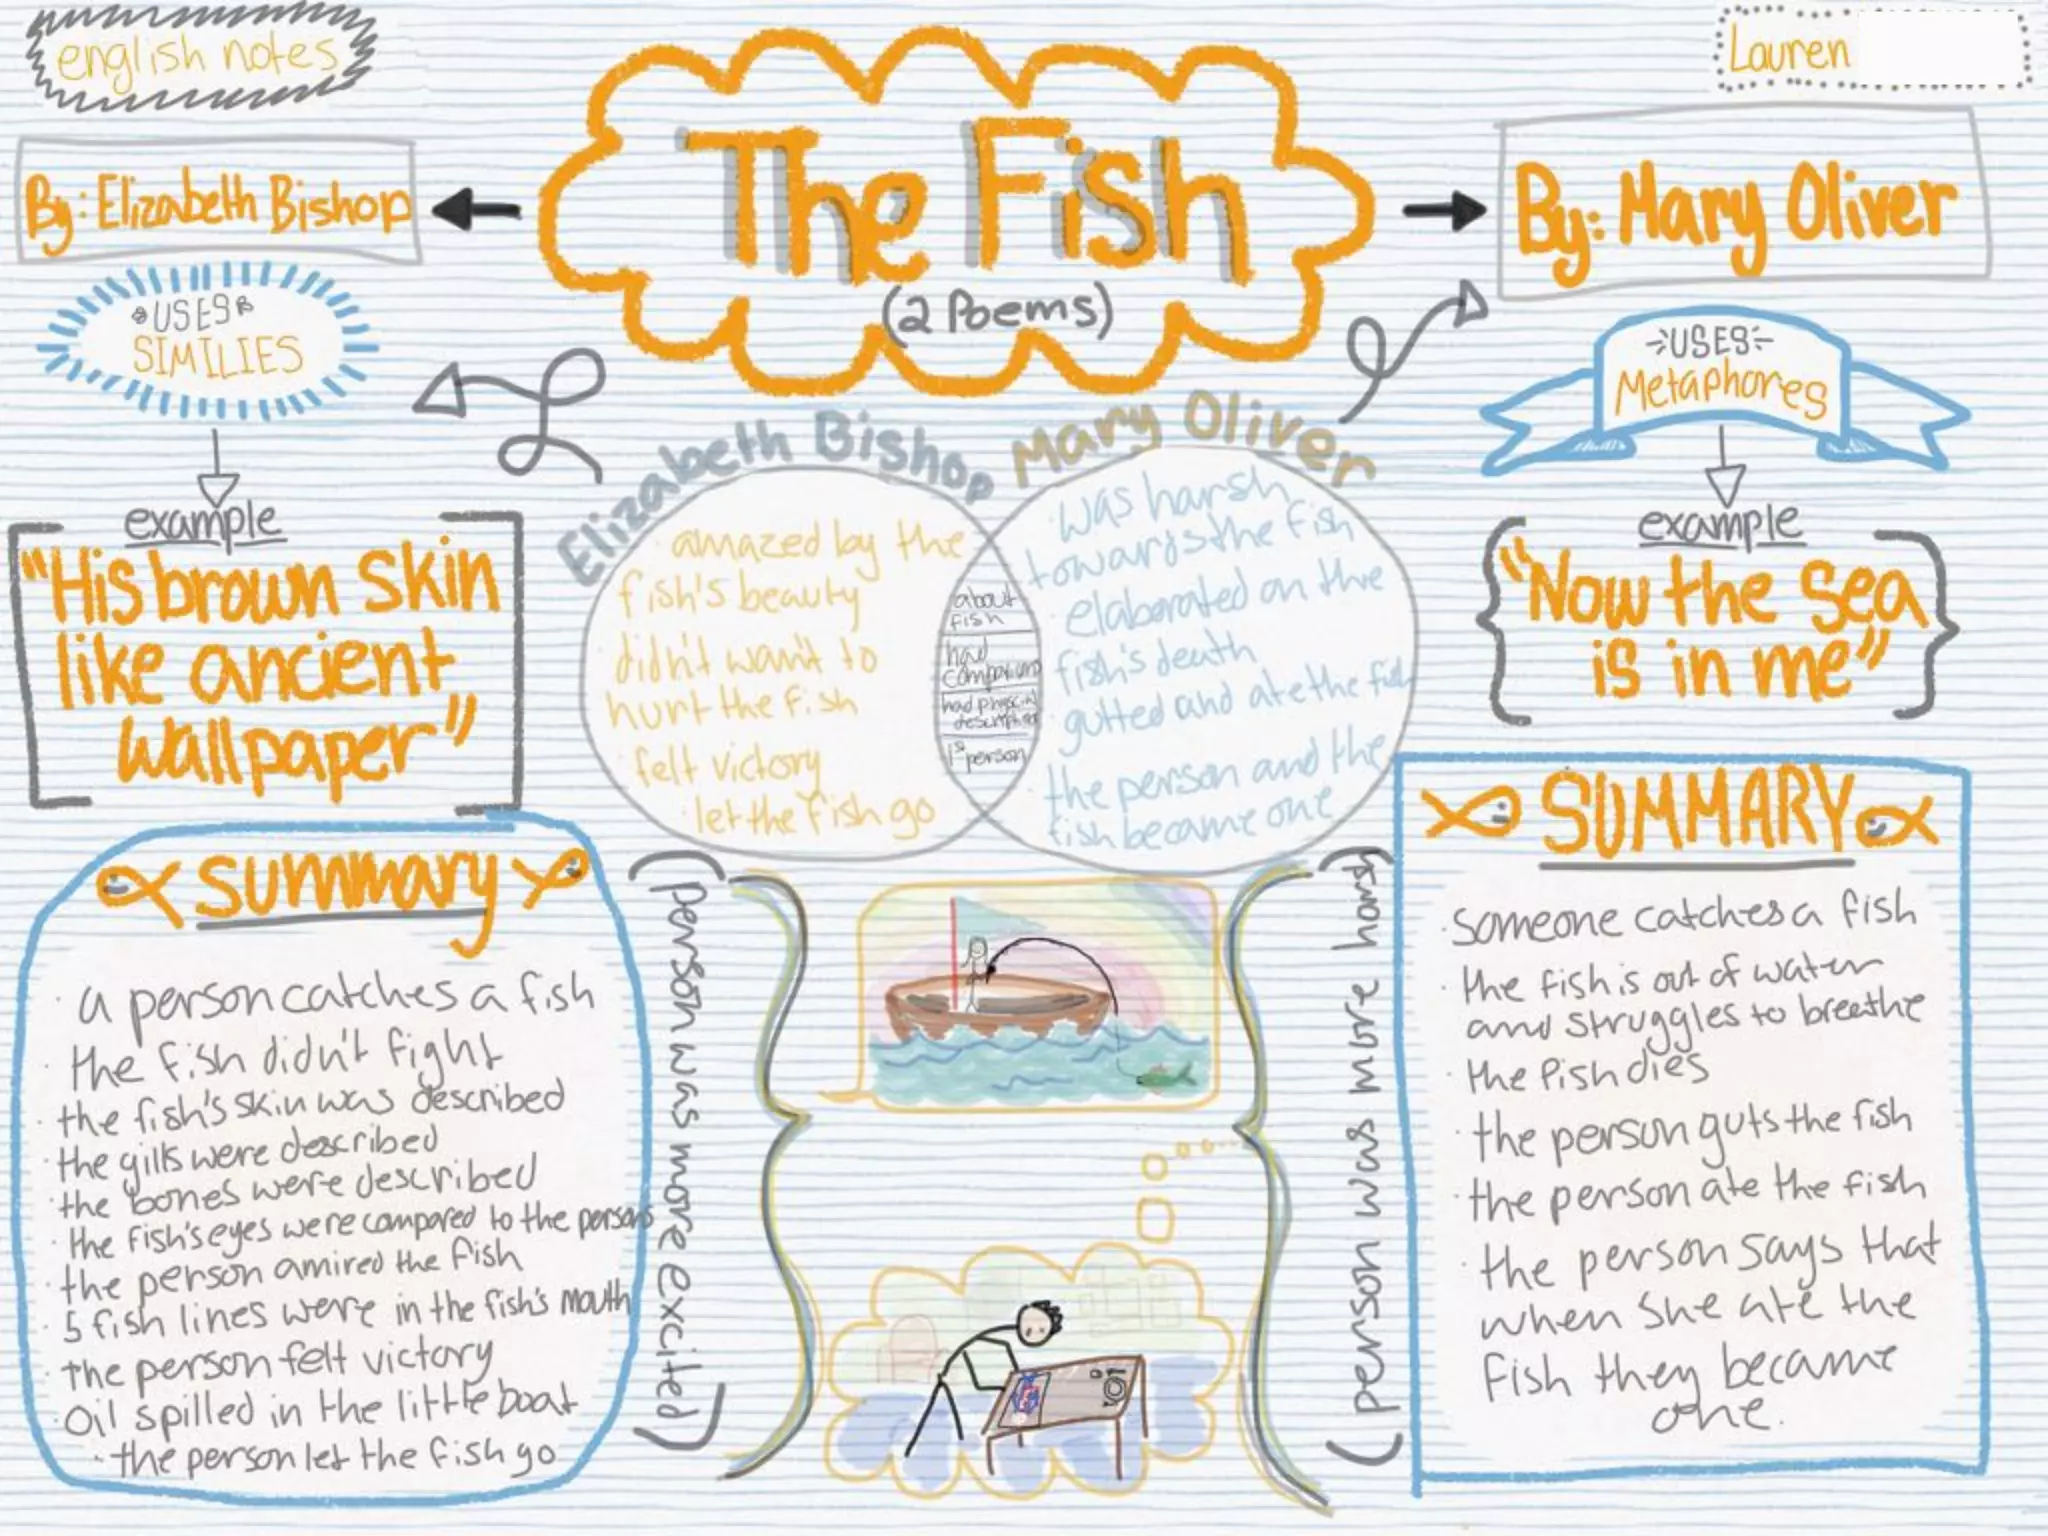 english notes
Lauren
The Fish
(2 Poems)
By: Elizabeth Bishop
By: Mary Oliver
USES
SIMILIES
example
"His brown skin
like ancient
wallpaper"
USES
Metaphores
example
"Now the sea
is in me"
Elizabeth Bishop
· amazed by the
fish's beauty
· didn't want to
hurt the fish
· felt victory
· let the fish go
about
fish
had
comparisons
had physical
description
1st person
Mary Oliver
· was harsh
towards the fish
· elaborated on the
fish's death
· gutted and ate the fish
· the person and the
fish became one
summary
· a person catches a fish
· the fish didn't fight
· the fish's skin was described
· the gills were described
· the bones were described
· the fish's eyes were compared to the persons
· the person amired the fish
· 5 fish lines were in the fish's mouth
· the person felt victory
· oil spilled in the little boat
· the person let the fish go
(person was more excited)
(person was more harsh)
SUMMARY
· someone catches a fish
· the fish is out of water
and struggles to breathe
· the fish dies
· the person guts the fish
· the person ate the fish
· the person says that
when she ate the
fish they became
one.